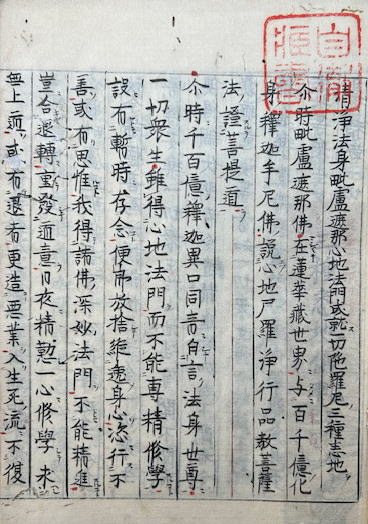 清浄法身毗盧遮那心地法門成就一切陀羅尼三種悉地
尒時毗盧遮那佛在蓮華藏世界与百千億化
身釋迦牟尼佛說心地尸羅淨行品教菩薩
法證菩提道
尒時千百億釋迦異口同音白言法身世尊
一切衆生雖得心地法門而不能専精修學
設有暫時存念便即放捨縱逸身心恣行不
善或有思惟我得諸佛深妙法門不能精進
豈合退轉重發道意日夜精懃一心修學求
無上道或有退者更造惡業入生死流不復